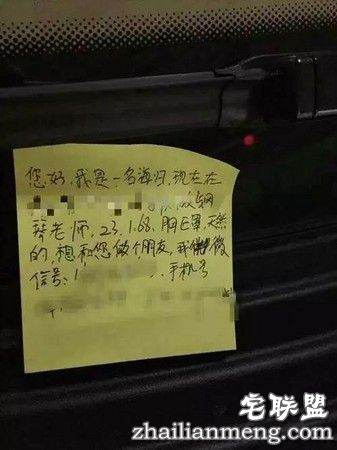 您好,我是一名海归,现在在
做钢
琴老师,23,1.68,胸E罩,天然
的,想和您做个朋友,我
微
信号:1
,手机号
宅联盟
zhailianmeng.com